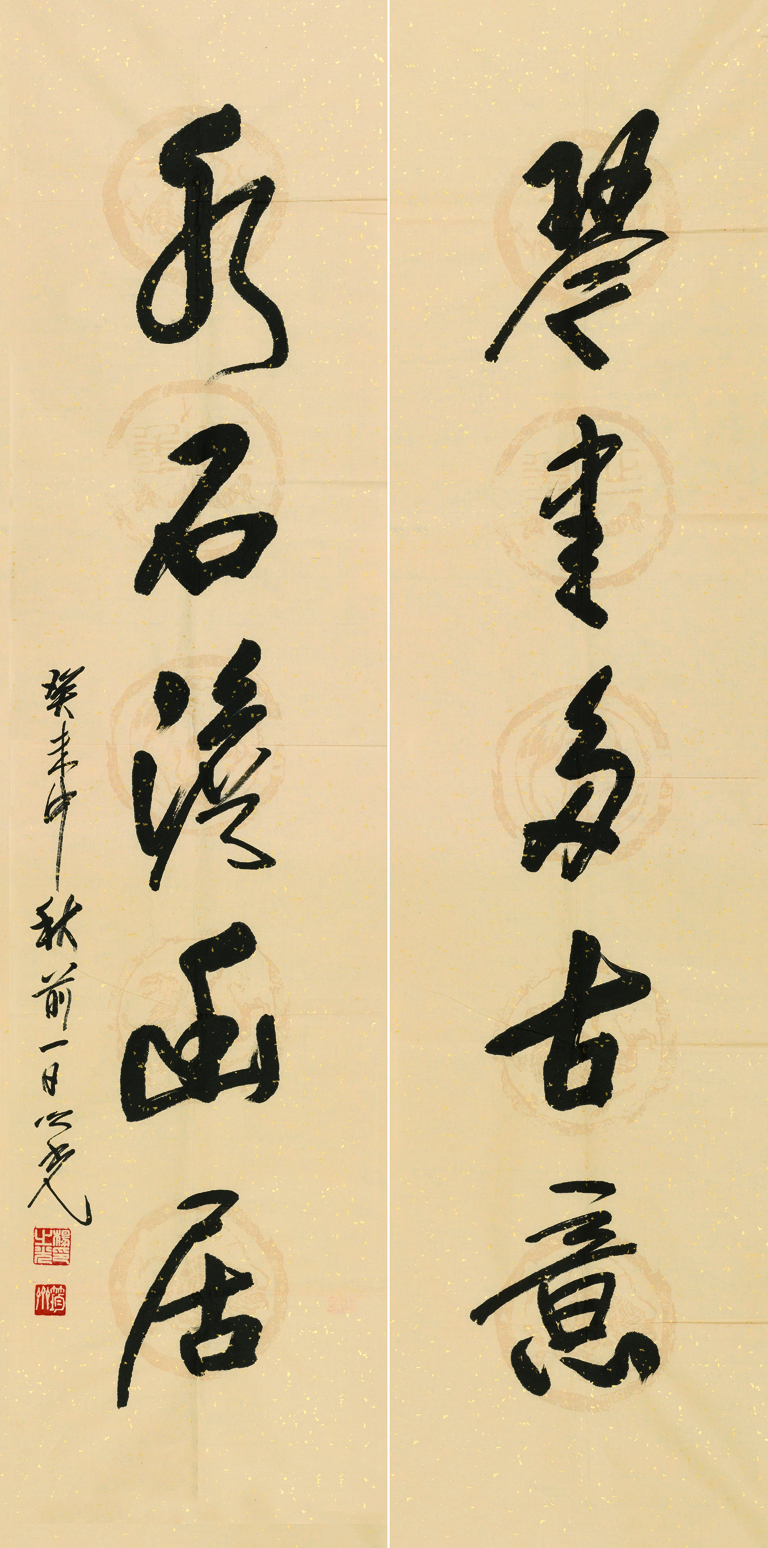 琴書多古意
水石澹幽居
癸未中秋前一日之光